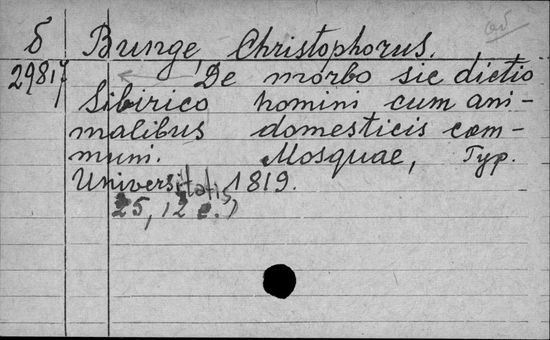 б Bunge, Christophorus.
29817 De morbo sic dictio
Sibirico homini cum ani-
malibus domesticis com-
muni. Mosquae, Typ.
Universitatis, 1819.
25, 12 c.)